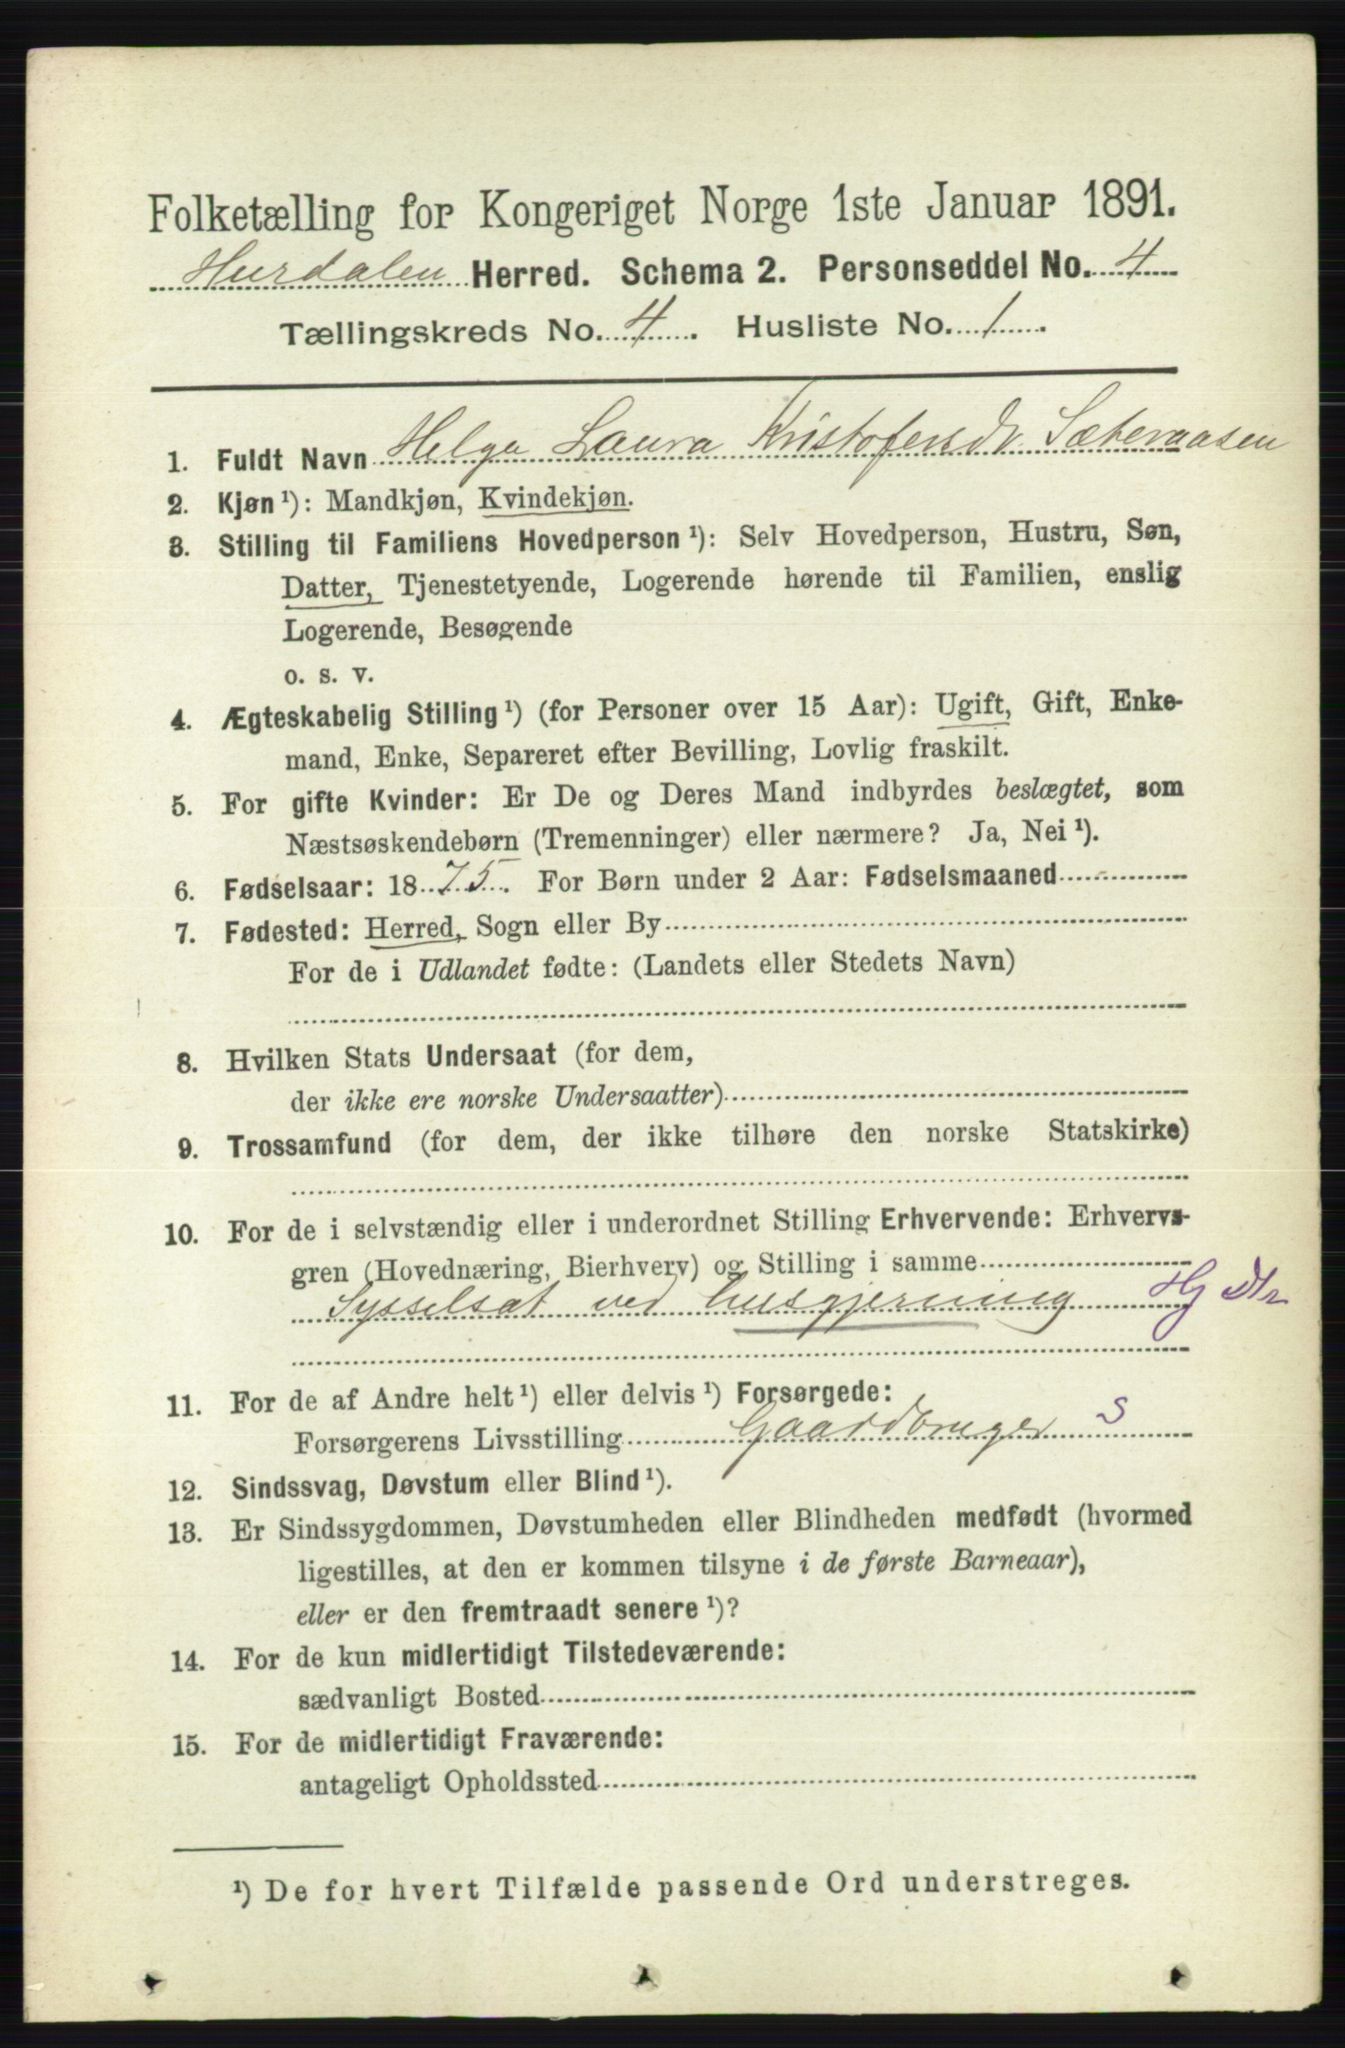 Folketælling for Kongeriget Norge 1ste Januar 1891.
Hurdalen Herred. Schema 2. Personseddel No. 4
Tællingskreds No. 4. Husliste No. 1.
1. Fuldt Navn Helga Laura Kristofersdr. Sæteraasen
2. Kjøn ¹): Mandkjøn, Kvindekjøn.
3. Stilling til Familiens Hovedperson ¹): Selv Hovedperson, Hustru, Søn,
Datter, Tjenestetyende, Logerende hørende til Familien, enslig
Logerende, Besøgende
o. s. v.
4. Ægteskabelig Stilling ¹) (for Personer over 15 Aar): Ugift, Gift, Enke-
mand, Enke, Separeret efter Bevilling, Lovlig fraskilt.
5. For gifte Kvinder: Er De og Deres Mand indbyrdes beslægtet, som
Næstsøskendebørn (Tremenninger) eller nærmere? Ja, Nei ¹).
6. Fødselsaar: 1875. For Børn under 2 Aar: Fødselsmaaned
7. Fødested: Herred, Sogn eller By
For de i Udlandet fødte: (Landets eller Stedets Navn)
8. Hvilken Stats Undersaat (for dem,
der ikke ere norske Undersaatter)
9. Trossamfund (for dem, der ikke tilhøre den norske Statskirke)
10. For de i selvstændig eller i underordnet Stilling Erhvervende: Erhvervs-
gren (Hovednæring, Bierhverv) og Stilling i samme
Sysselsat ved husgjerning Hj Dtr
11. For de af Andre helt ¹) eller delvis ¹) Forsørgede:
Forsørgerens Livsstilling Gaardbruger S
12. Sindssvag, Døvstum eller Blind ¹).
13. Er Sindssygdommen, Døvstumheden eller Blindheden medfødt (hvormed
ligestilles, at den er kommen tilsyne i de første Barneaar),
eller er den fremtraadt senere ¹)?
14. For de kun midlertidigt Tilstedeværende:
sædvanligt Bosted
15. For de midlertidigt Fraværende:
antageligt Opholdssted
¹) De for hvert Tilfælde passende Ord understreges.